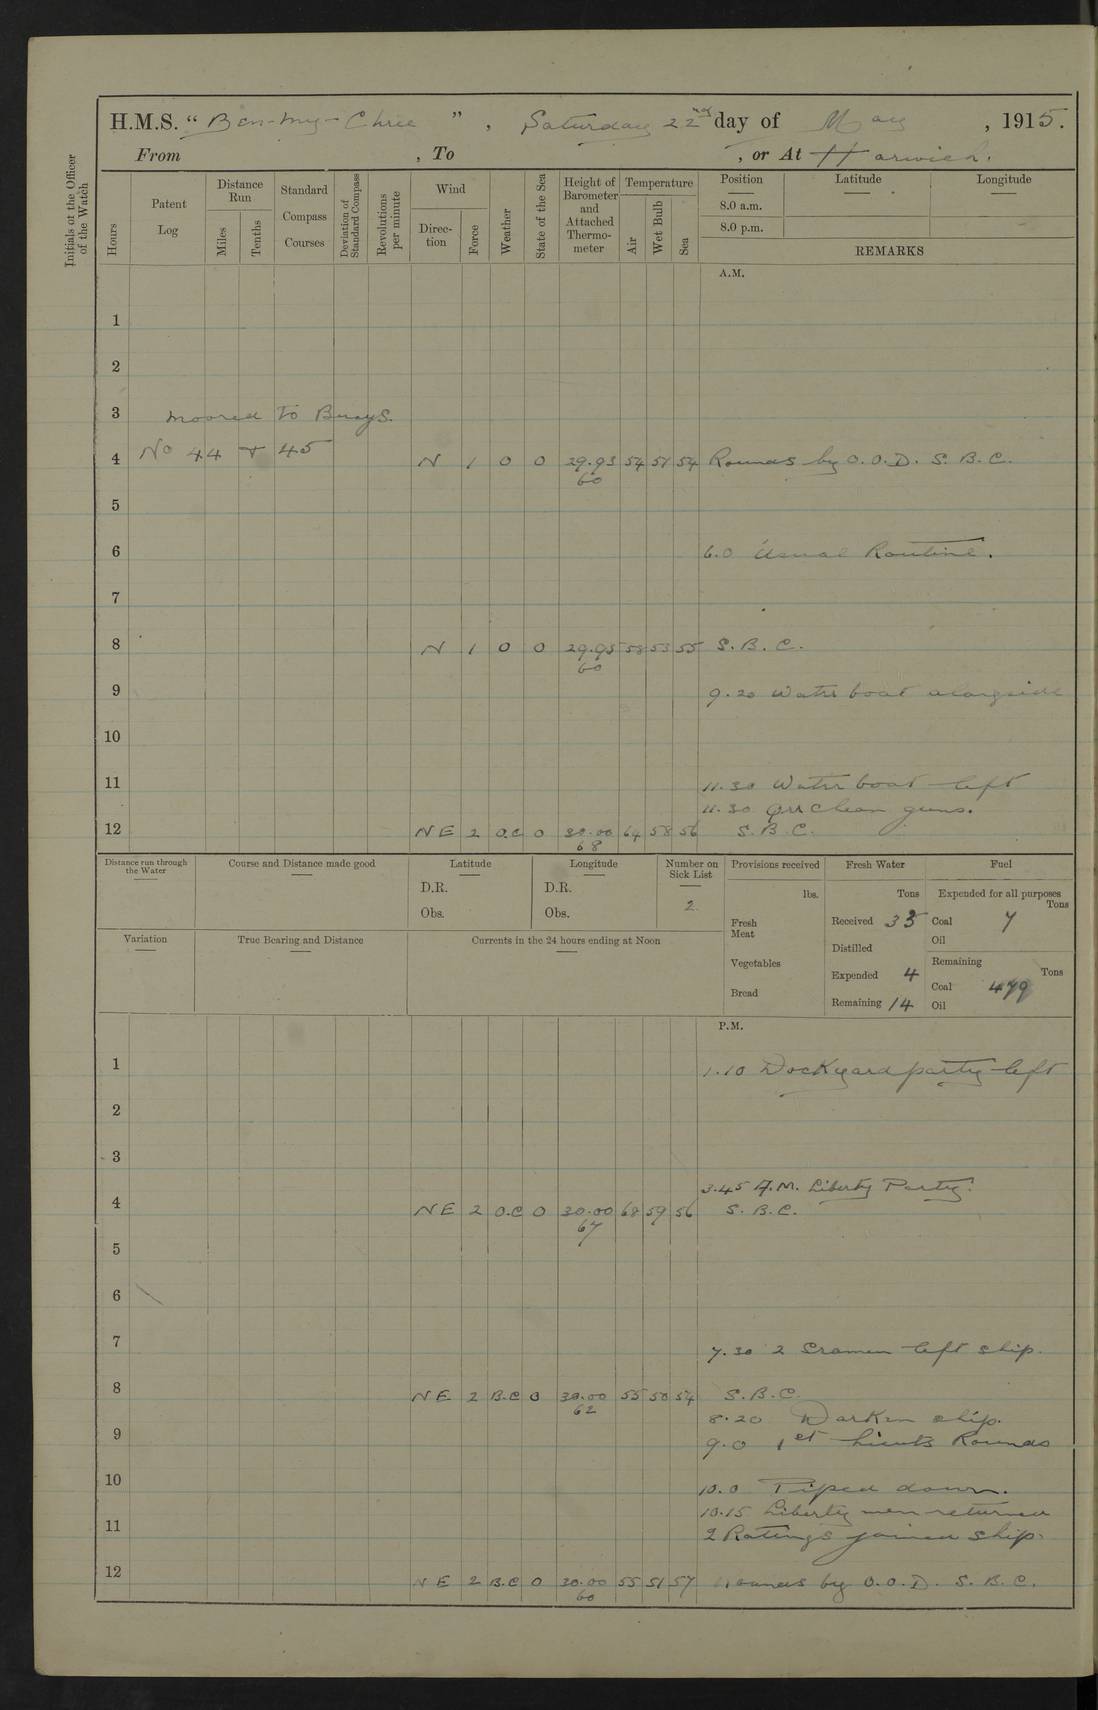 H.M.S. " Ben-my-Chree ", Saturday 22nd day of May, 1915.
From , To , or At Harwich.
Initials of the Officer of the Watch
Hours
Patent Log
Distance Run
Miles
Tenths
Standard Compass Courses
Deviation of Standard Compass
Revolutions per minute
Wind
Direction
Force
Weather
State of the Sea
Height of Barometer and Attached Thermometer
Temperature
Air
Wet Bulb
Sea
Position Latitude Longitude
8.0 a.m.
8.0 p.m.
REMARKS
A.M.
1
2
3 Moored to Buoys.
No 44 & 45
4 N 1 O O 29.93 54 51 54 Rounds by O.O.D. S.B.C.
60
5
6 6.0 Usual Routine.
7
8 N 1 O O 29.95 58 53 55 S.B.C.
60
9 9.20 Water boat alongside
10
11 11.30 Water boat left
11.30 Qrs clean guns.
12 NE 2 O.C O 30.00 64 58 56 S.B.C.
68
Distance run through the Water
Course and Distance made good
Latitude
D.R.
Obs.
Longitude
D.R.
Obs.
Number on Sick List
2
Variation
True Bearing and Distance
Currents in the 24 hours ending at Noon
Provisions received
lbs.
Fresh Meat
Vegetables
Bread
Fresh Water
Tons
Received 33
Distilled
Expended 4
Remaining 14
Fuel
Expended for all purposes
Tons
Coal 7
Oil
Remaining
Tons
Coal 479
Oil
P.M.
1 1.10 Dockyard party left
2
3
3.45 A.M. Liberty Party.
4 NE 2 O.C O 30.00 68 59 56 S.B.C.
67
5
6
7 7.30 2 Seamen left ship.
8 NE 2 B.C O 30.00 55 50 54 S.B.C.
62
8.20 Darken ship.
9 9.0 1st Lieuts Rounds
10 10.0 Piped down.
10.15 Liberty men returned
11 2 Ratings joined ship.
12 NE 2 B.C O 30.00 55 51 57 Rounds by O.O.D. S.B.C.
60